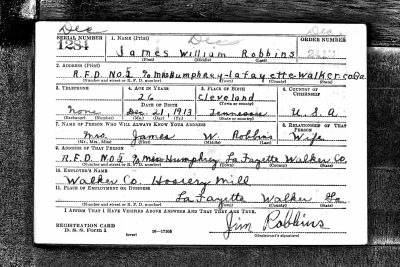 Dec Dec
SERIAL NUMBER 1. NAME (Print) ORDER NUMBER
1284 James William Robbins
(First) (Middle) (Last)
2. ADDRESS (Print)
R.F.D. No.5 % Mrs Humphrey-Lafayette Walker co Ga.
(Number and street or R. F. D. number) (Town) (County) (State)
3. TELEPHONE 4. AGE IN YEARS 5. PLACE OF BIRTH 6. COUNTRY OF CITIZENSHIP
26 Cleveland
DATE OF BIRTH (Town or county)
None Dec. 21, 1913 Tennessee U.S.A.
(Exchange) (Number) (Mo.) (Day) (Yr.) (State or country)
7. NAME OF PERSON WHO WILL ALWAYS KNOW YOUR ADDRESS 8. RELATIONSHIP OF THAT PERSON
Mrs. James W. Robbins Wife
(Mr., Mrs., Miss) (First) (Middle) (Last)
9. ADDRESS OF THAT PERSON
R.F.D. No.5 % Mrs Humphrey La Fayette Walker Co.
(Number and street or R. F. D. number) (Town) (County) (State)
10. EMPLOYER'S NAME
Walker Co. Hosiery Mill
11. PLACE OF EMPLOYMENT OR BUSINESS
La Fayette Walker Ga
(Number and street or R. F. D. number) (Town) (County) (State)
I AFFIRM THAT I HAVE VERIFIED ABOVE ANSWERS AND THAT THEY ARE TRUE.
REGISTRATION CARD Jim Robbins
D. S. S. Form 1 (over) 16—17105 (Registrant's signature)